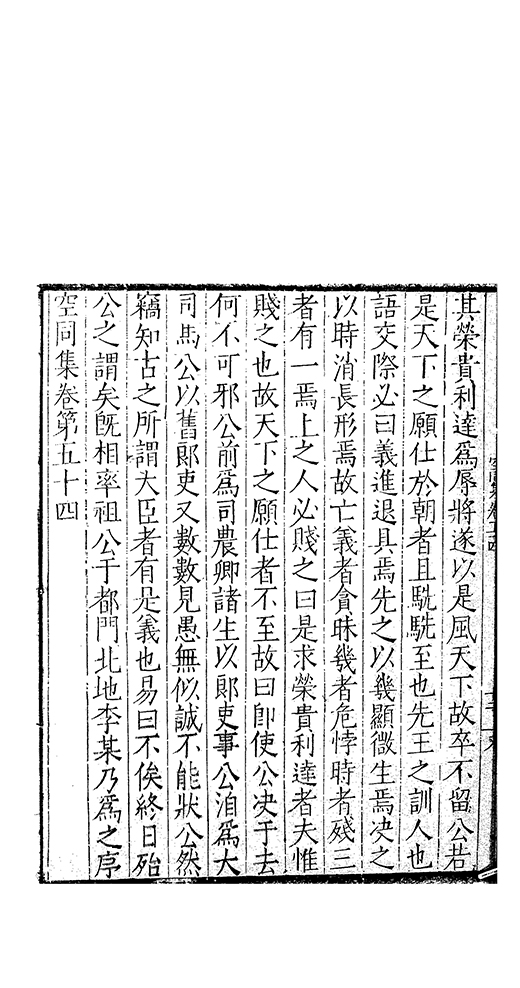 其榮貴利達爲辱將遂以是風天下故卒不留公若
是天下之願仕於朝者且駪駪至也先王之訓人也
語交際必曰義進退具焉先之以幾顯微生焉决之
以時消長形焉故亡義者貪昧幾者危悖時者殘三
者有一焉上之人必賤之曰是求榮貴利達者夫惟
賤之也故天下之願仕者不至故曰卽使公决于去
何不可邪公前爲司農卿諸生以郞吏事公洎爲大
司馬公以舊郞吏又數數見愚無似誠不能狀公然
竊知古之所謂大臣者有是義也易曰不俟終日殆
公之謂矣旣相率祖公于都門北地李某乃爲之序
空同集卷第五十四